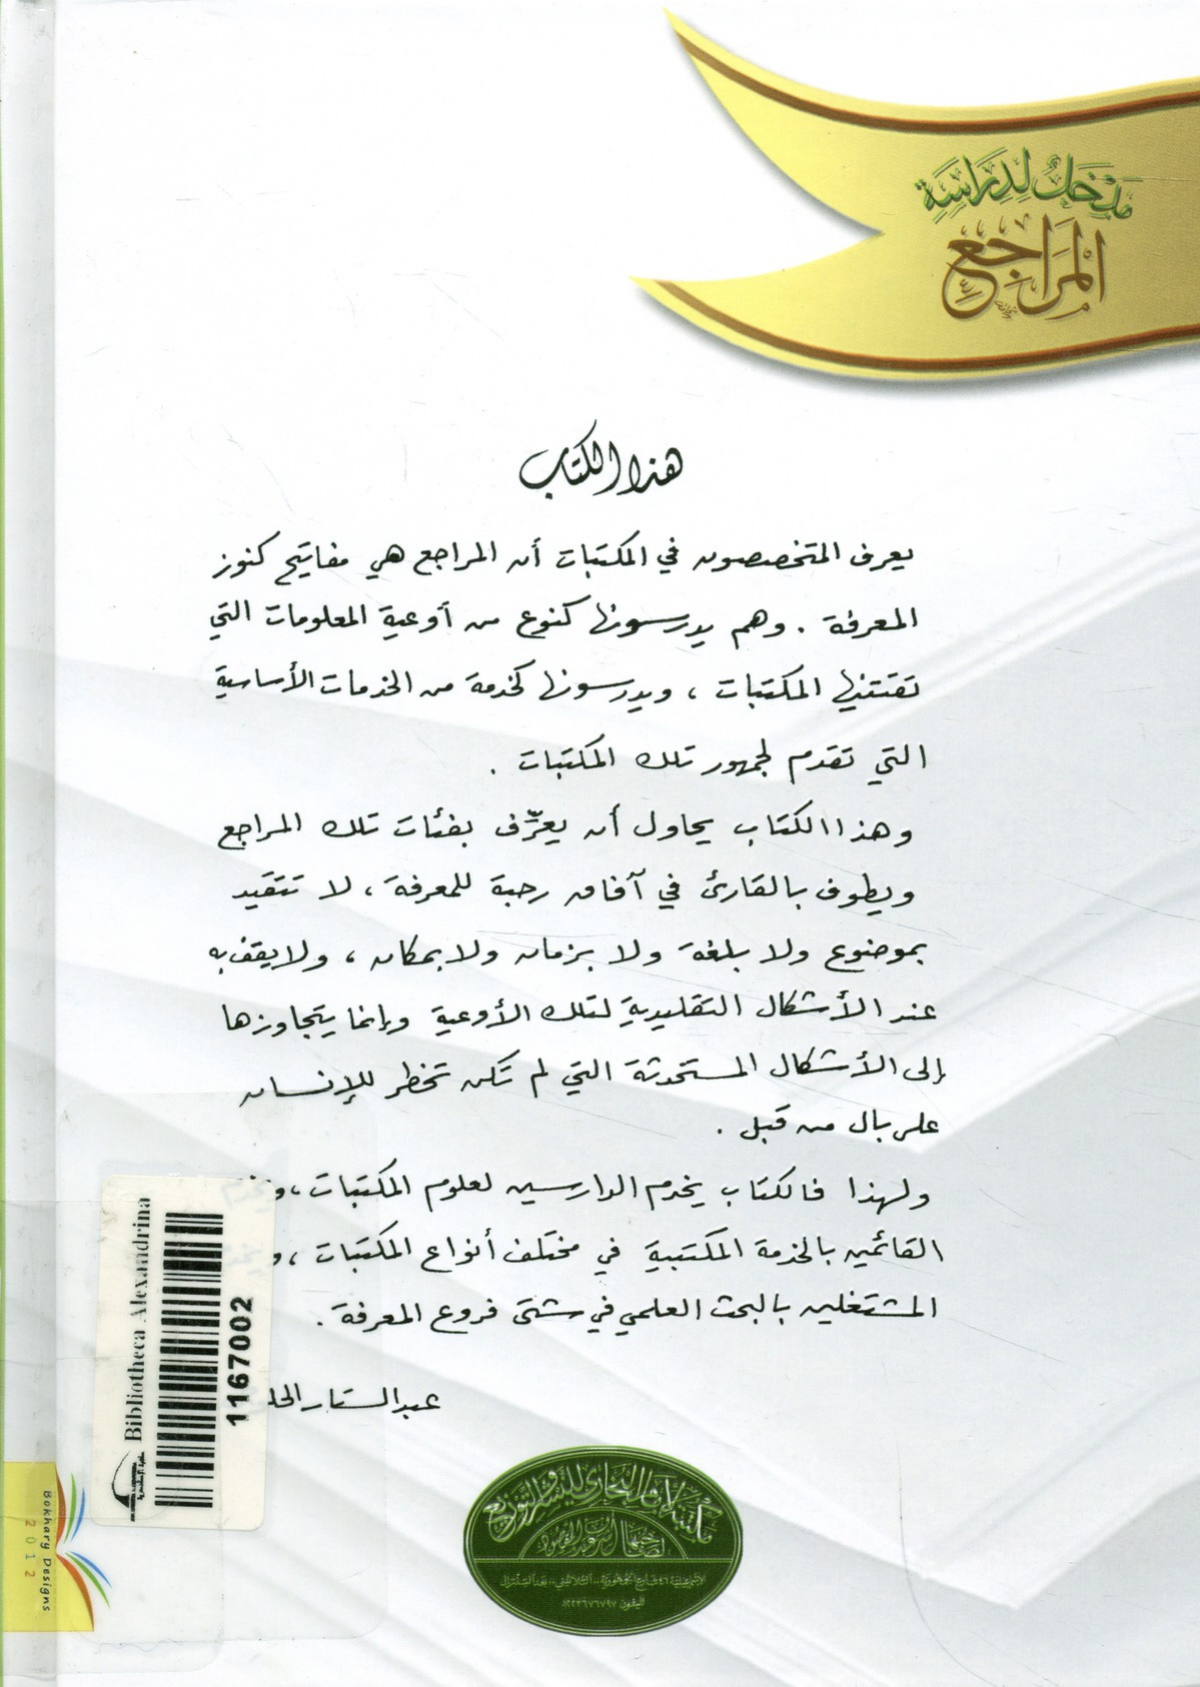 مدخل لدراسة
المراجع
هذا الكتاب
يعرف المتخصصون في المكتبات أن المراجع هي مفاتيح كنوز
المعرفة . وهم يدرسونها كنوع من أوعية المعلومات التي
تقتنيها المكتبات ، ويدرسونها كخدمة من الخدمات الأساسية
التي تقدم لجمهور تلك المكتبات .
وهذا الكتاب يحاول أن يعرِّف بفئات تلك المراجع
ويطوف بالقارئ في آفاق رحبة للمعرفة ، لا تتقيد
بموضوع ولا بلغة ولا بزمان ولا بمكان ، ولا يقف به
عند الأشكال التقليدية لتلك الأوعية وإنما يتجاوزها
إلى الأشكال المستحدثة التي لم تكن تخطر للإنسان
على بال من قبل .
ولهذا فالكتاب يخدم الدارسين لعلوم المكتبات ، ويخدم
القائمين بالخدمة المكتبية في مختلف أنواع المكتبات ، و
المشتغلين بالبحث العلمي في شتى فروع المعرفة .
عبد الستار
Bibliotheca Alexandrina
مكتبة الإسكندرية
1167002
مكتبة الإمام البخاري للنشر والتوزيع
لصاحبها السيد عبد المقصود
Bokhary Designs
2012